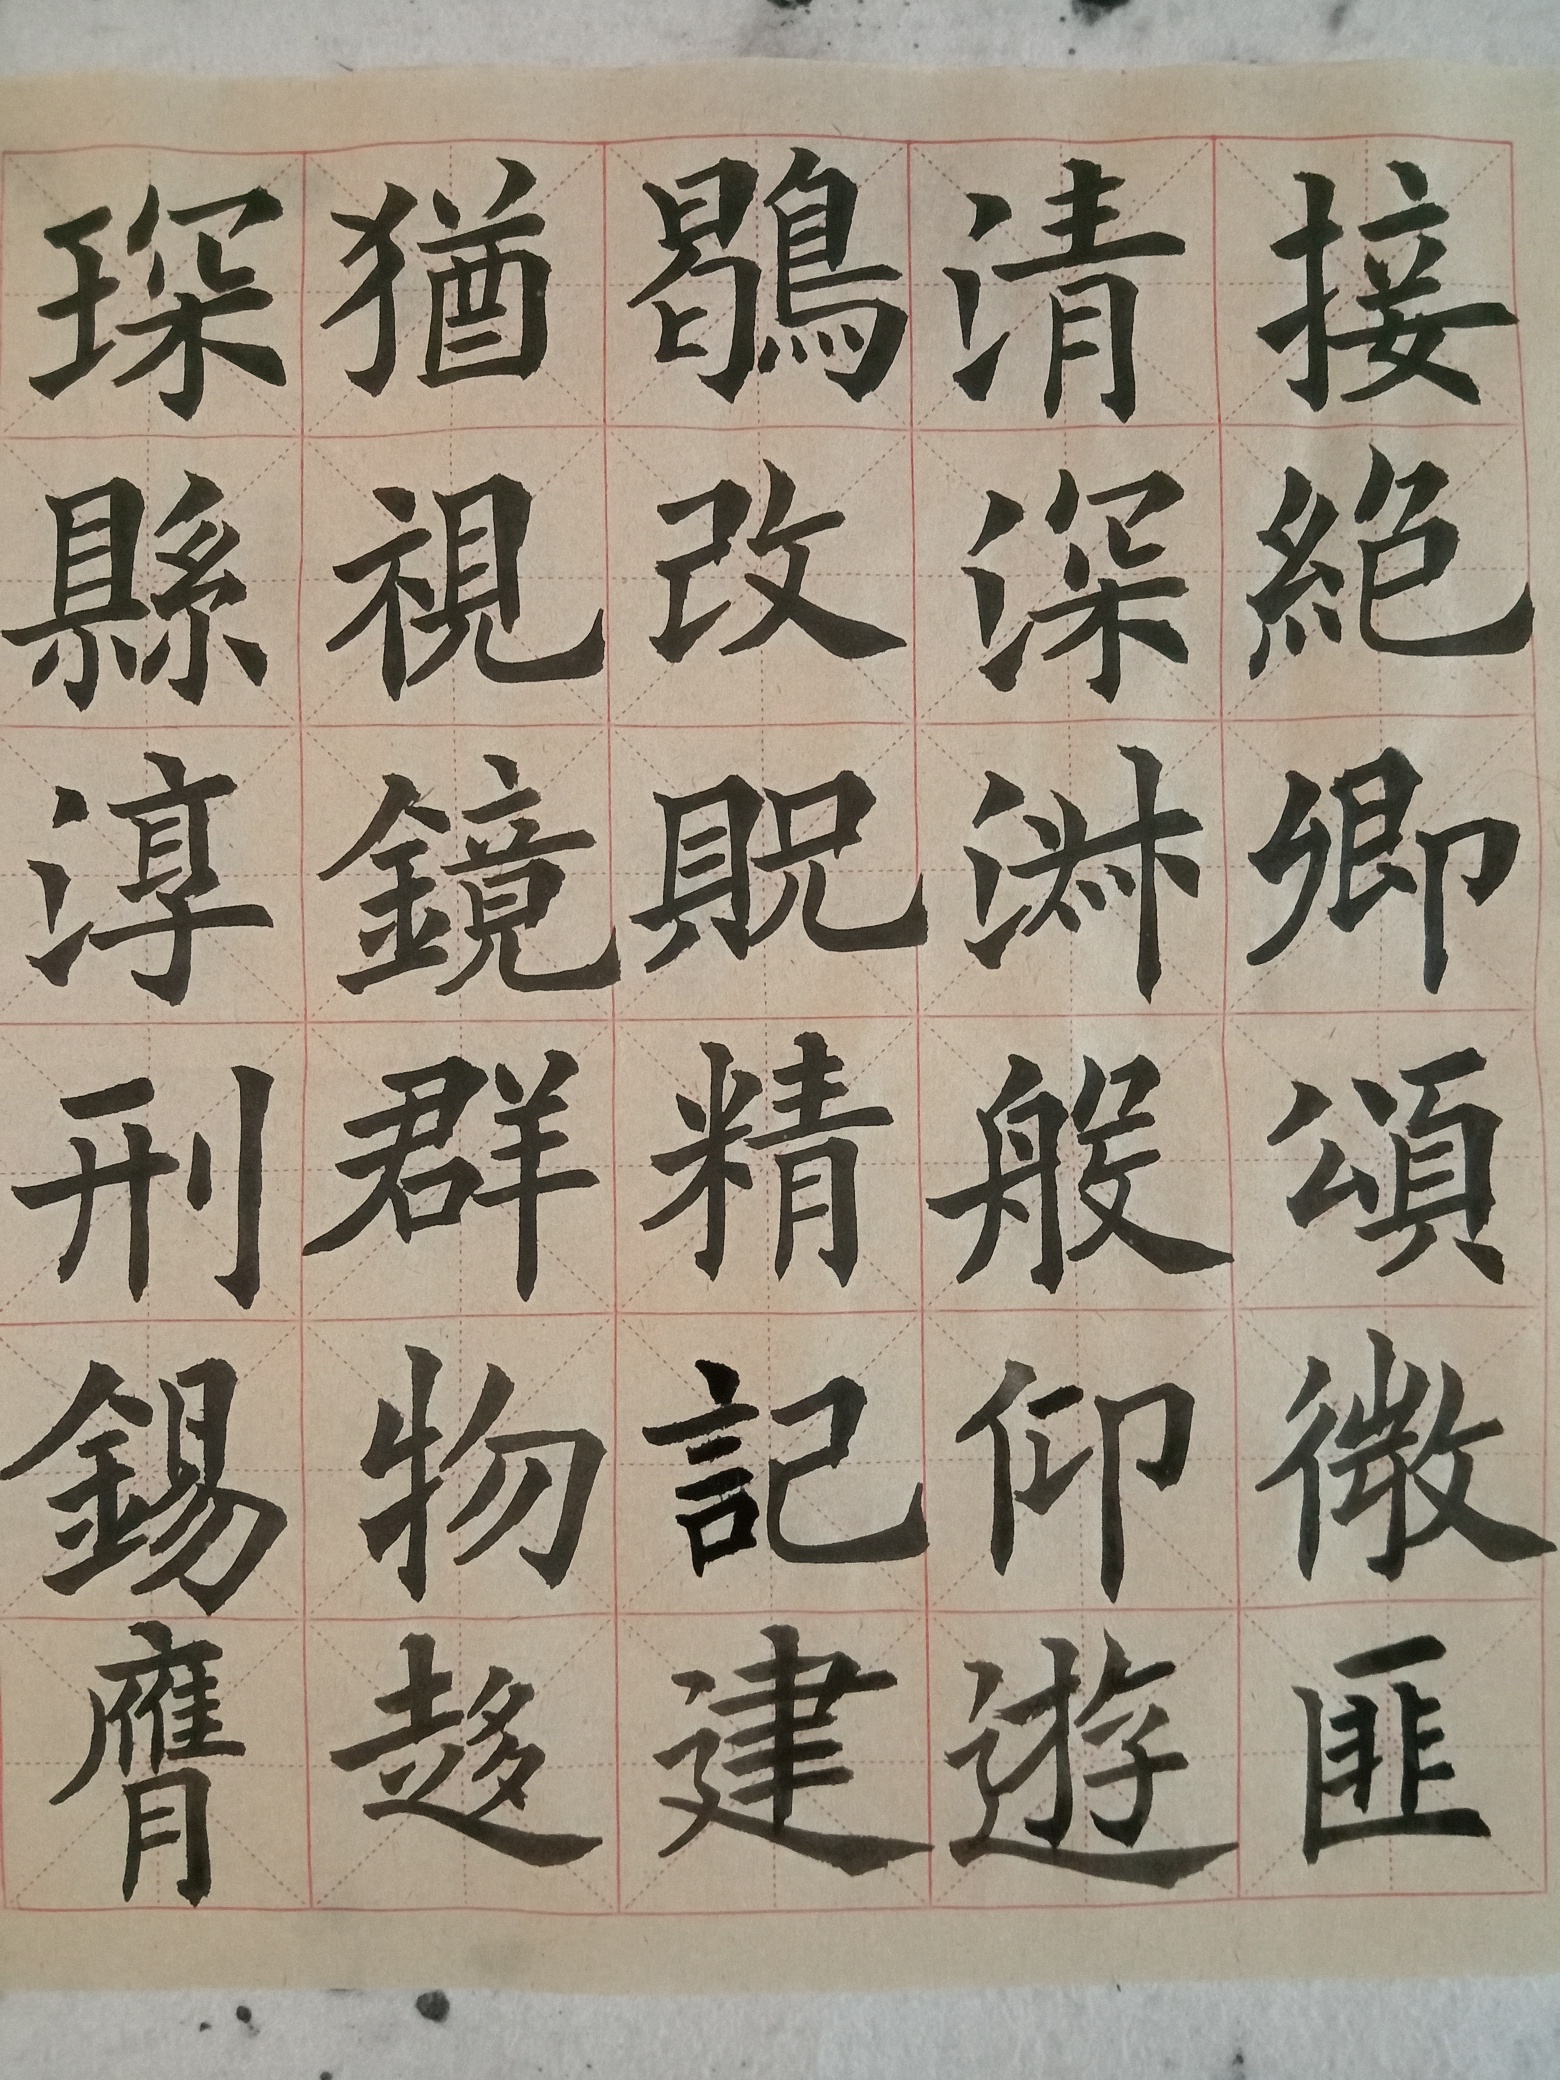 接絶卿頌微匪
清深淑般仰遊
鶡改貺精記建
猶視鏡群物趍
琛縣淳刑錫膺